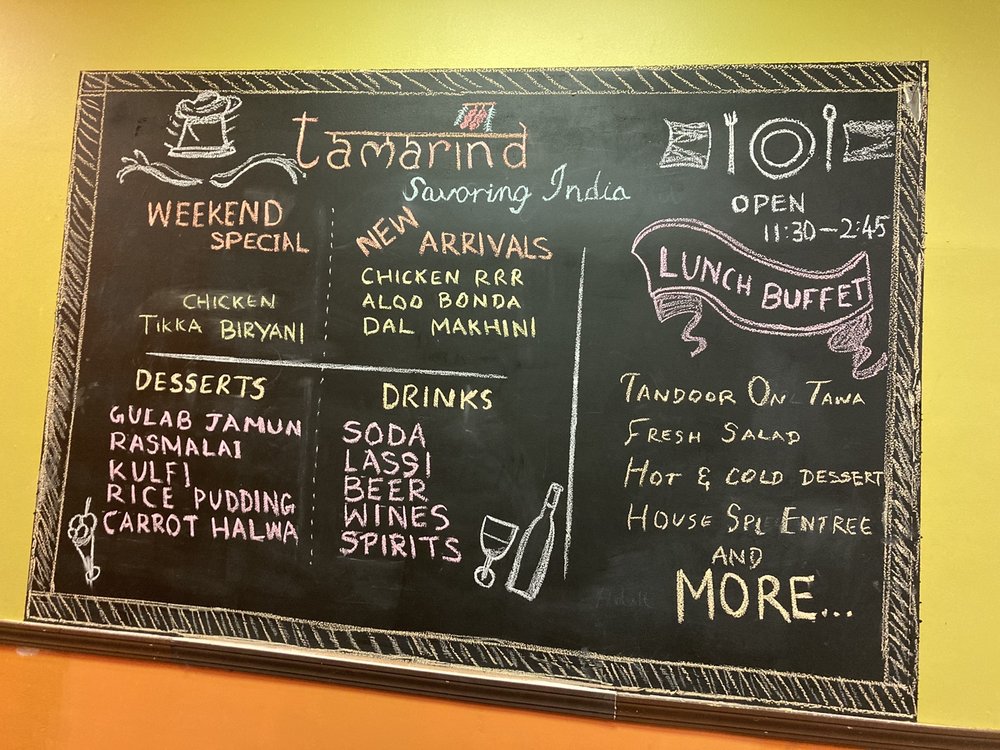 tamarind
Savoring India
WEEKEND
SPECIAL
CHICKEN
TIKKA BIRYANI
NEW
ARRIVALS
CHICKEN RRR
ALOO BONDA
DAL MAKHINI
DESSERTS
GULAB JAMUN
RASMALAI
KULFI
RICE PUDDING
CARROT HALWA
DRINKS
SODA
LASSI
BEER
WINES
SPIRITS
OPEN
11:30-2:45
LUNCH BUFFET
TANDOOR ON TAWA
FRESH SALAD
HOT & COLD DESSERT
HOUSE SPL ENTREE
AND
MORE...